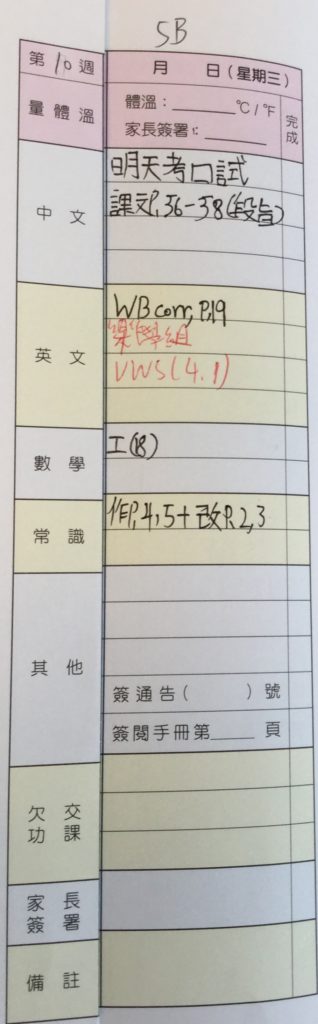 5B
第10週
月 日(星期三)
量體溫
體溫:______°C/°F
家長簽署:______
完成
中文
明天考口試
課文P.56-58(段旨)
英文
WB corr, P.19
樂學組
VWS(4.1)
數學
工(18)
常識
作P.4,5+改P.2,3
其他
簽通告( )號
簽閱手冊第____頁
欠交功課
家長簽署
備註